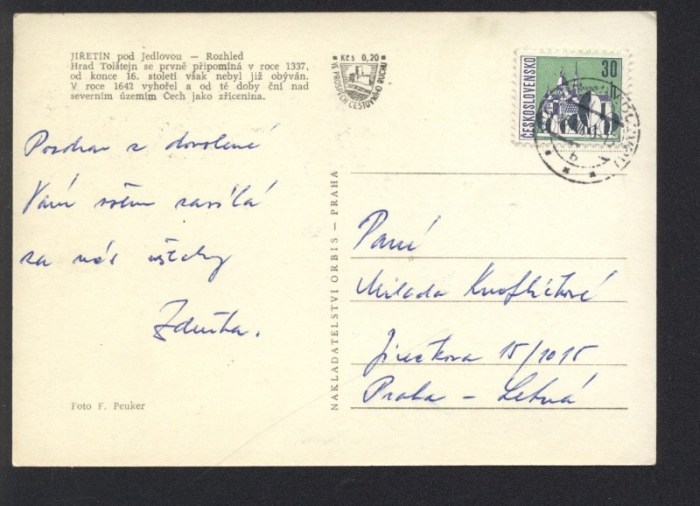 JIŘETÍN pod Jedlovou — Rozhled
Hrad Tolštejn se prvně připomíná v roce 1337,
od konce 16. století však nebyl již obýván.
V roce 1642 vyhořel a od té doby ční nad
severním územím Čech jako zřícenina.
Kčs 0,20
VE PROSPĚCH CESTOVNÍHO RUCHU
30
ČESKOSLOVENSKO
Pozdrav z dovolené
Vám všem zasílá
za nás všechny
Zdeňka.
NAKLADATELSTVÍ ORBIS — PRAHA
Paní
Milada Knoflíčková
Jirečkova 15/1015
Praha - Letná
Foto F. Peuker